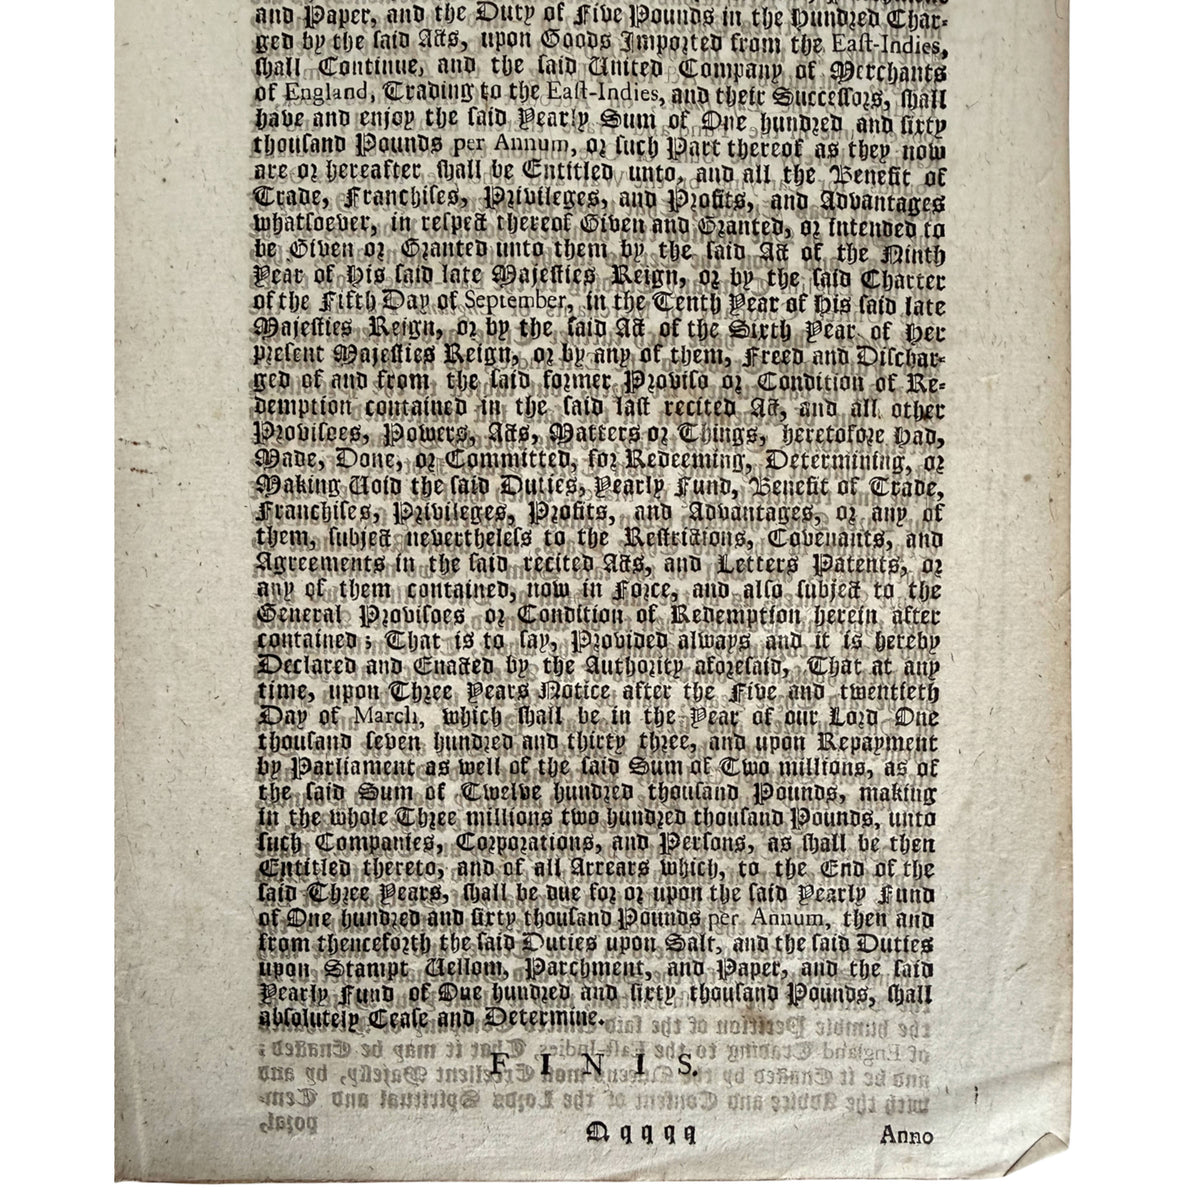 and Paper, and the Duty of Five Pounds in the Hundred Char-
ged by the ſaid Acts, upon Goods Imported from the Eaſt-Indies,
ſhall Continue, and the ſaid United Company of Merchants
of England, Trading to the Eaſt-Indies, and their Succeſſors, ſhall
have and enjoy the ſaid Yearly Sum of One hundred and ſixty
thouſand Pounds per Annum, or ſuch Part thereof as they now
are or hereafter ſhall be Entitled unto, and all the Benefit of
Trade, Franchiſes, Privileges, and Profits, and Advantages
whatſoever, in reſpect thereof Given and Granted, or intended to
be Given or Granted unto them by the ſaid Act of the Ninth
Year of His ſaid late Majeſties Reign, or by the ſaid Charter
of the Fifth Day of September, in the Tenth Year of His ſaid late
Majeſties Reign, or by the ſaid Act of the Sixth Year of Her
preſent Majeſties Reign, or by any of them, Freed and Diſchar-
ged of and from the ſaid former Proviſo or Condition of Re-
demption contained in the ſaid laſt recited Act, and all other
Proviſoes, Powers, Acts, Matters or Things, heretofore Had,
Made, Done, or Committed, for Redeeming, Determining, or
Making Void the ſaid Duties, Yearly Fund, Benefit of Trade,
Franchiſes, Privileges, Profits, and Advantages, or any of
them, ſubject nevertheleſs to the Reſtrictions, Covenants, and
Agreements in the ſaid recited Acts, and Letters Patents, or
any of them contained, now in Force, and alſo ſubject to the
General Proviſoes or Condition of Redemption herein after
contained; That is to ſay, Provided always and it is hereby
Declared and Enacted by the Authority aforeſaid, That at any
time, upon Three Years Notice after the Five and twentieth
Day of March, which ſhall be in the Year of our Lord One
thouſand ſeven hundred and thirty three, and upon Repayment
by Parliament as well of the ſaid Sum of Two millions, as of
the ſaid Sum of Twelve hundred thouſand Pounds, making
in the whole Three millions two hundred thouſand Pounds, unto
ſuch Companies, Corporations, and Perſons, as ſhall be then
Entitled thereto, and of all Arrears which, to the End of the
ſaid Three Years, ſhall be due for or upon the ſaid Yearly Fund
of One hundred and ſixty thouſand Pounds per Annum, then and
from thenceforth the ſaid Duties upon Salt, and the ſaid Duties
upon Stampt Vellom, Parchment, and Paper, and the ſaid
Yearly Fund of One hundred and ſixty thouſand Pounds, ſhall
abſolutely Ceaſe and Determine.
FINIS.
Qqqqq Anno